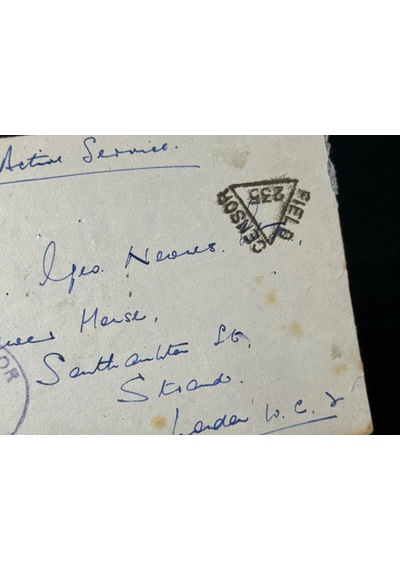 Active Service.
FIELD
CENSOR
235
Geo. Newnes
House,
Southampton St,
Strand.
London W.C. 2
OR